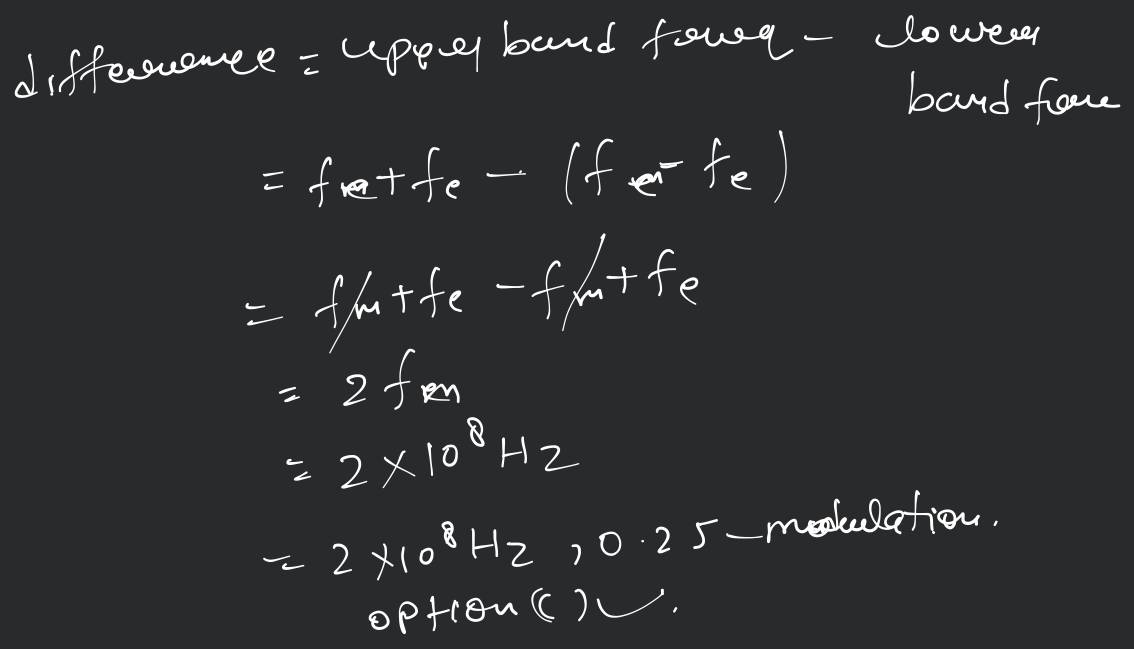 difference = upper band freq - lower
band fre
= fm + fe - (fm - fe)
= fm + fe - fm + fe
= 2 fm
= 2 × 10⁸ Hz
= 2 × 10⁸ Hz , 0.25 - modulation.
option (c) ✓.